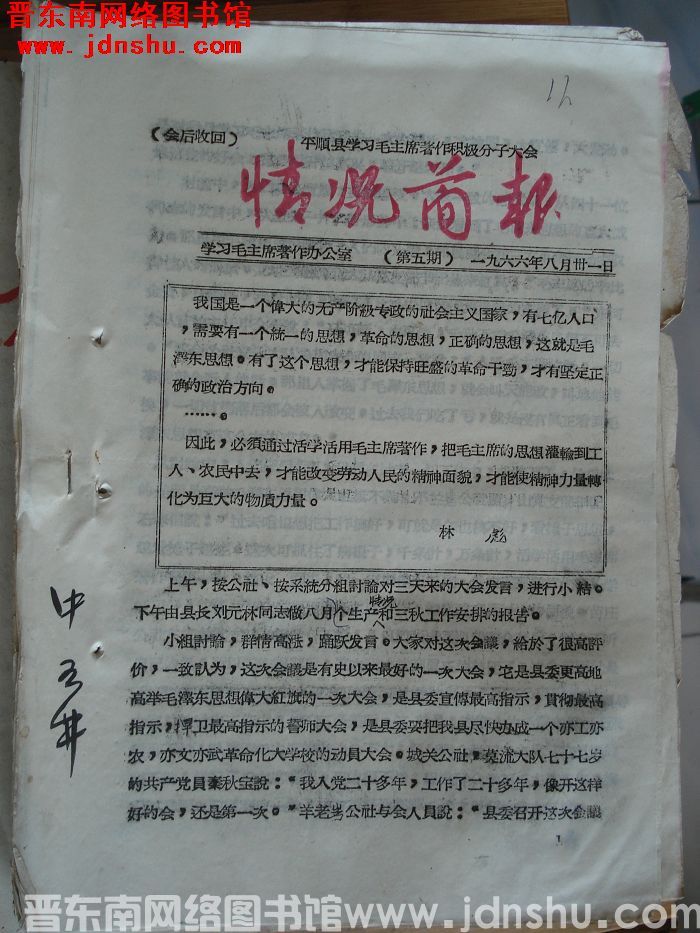 晋东南网络图书馆
www.jdnshu.com
12
（会后收回）
平顺县学习毛主席著作积极分子大会
情况简报
学习毛主席著作办公室 （第五期） 一九六六年八月卅一日
我国是一个偉大的无产阶級专政的社会主义国家，有七亿人口
，需要有一个統一的思想，革命的思想，正确的思想，这就是毛
澤东思想。有了这个思想，才能保持旺盛的革命干勁，才有坚定正
确的政治方向。
……。
因此，必須通过活学活用毛主席著作，把毛主席的思想灌輸到工
人、农民中去，才能改变劳动人民的精神面貌，才能使精神力量轉
化为巨大的物质力量。
林 彪
上午，按公社、按系統分組討論对三天来的大会发言，进行小結。
下午由县长刘元林同志做八月个生产情况和三秋工作安排的报告。
小組討論，群情高涨，踊跃发言。大家对这次会議，給於了很高評
价，一致认为，这次会議是有史以来最好的一次大会，它是县委更高地
高举毛澤东思想偉大紅旗的一次大会，是县委宣傳最高指示，貫彻最高
指示，捍卫最高指示的誓师大会，是县委要把我县尽快办成一个亦工亦
农，亦文亦武革命化大学校的动員大会。城关公社，莫流大队七十七岁
的共产党員秦秋宝說：“我入党二十多年，工作了二十多年，像开这样
好的会，还是第一次。”羊老岩公社与会人員說：“县委召开这次会議
1
中五井
晋东南网络图书馆 www.jdnshu.com